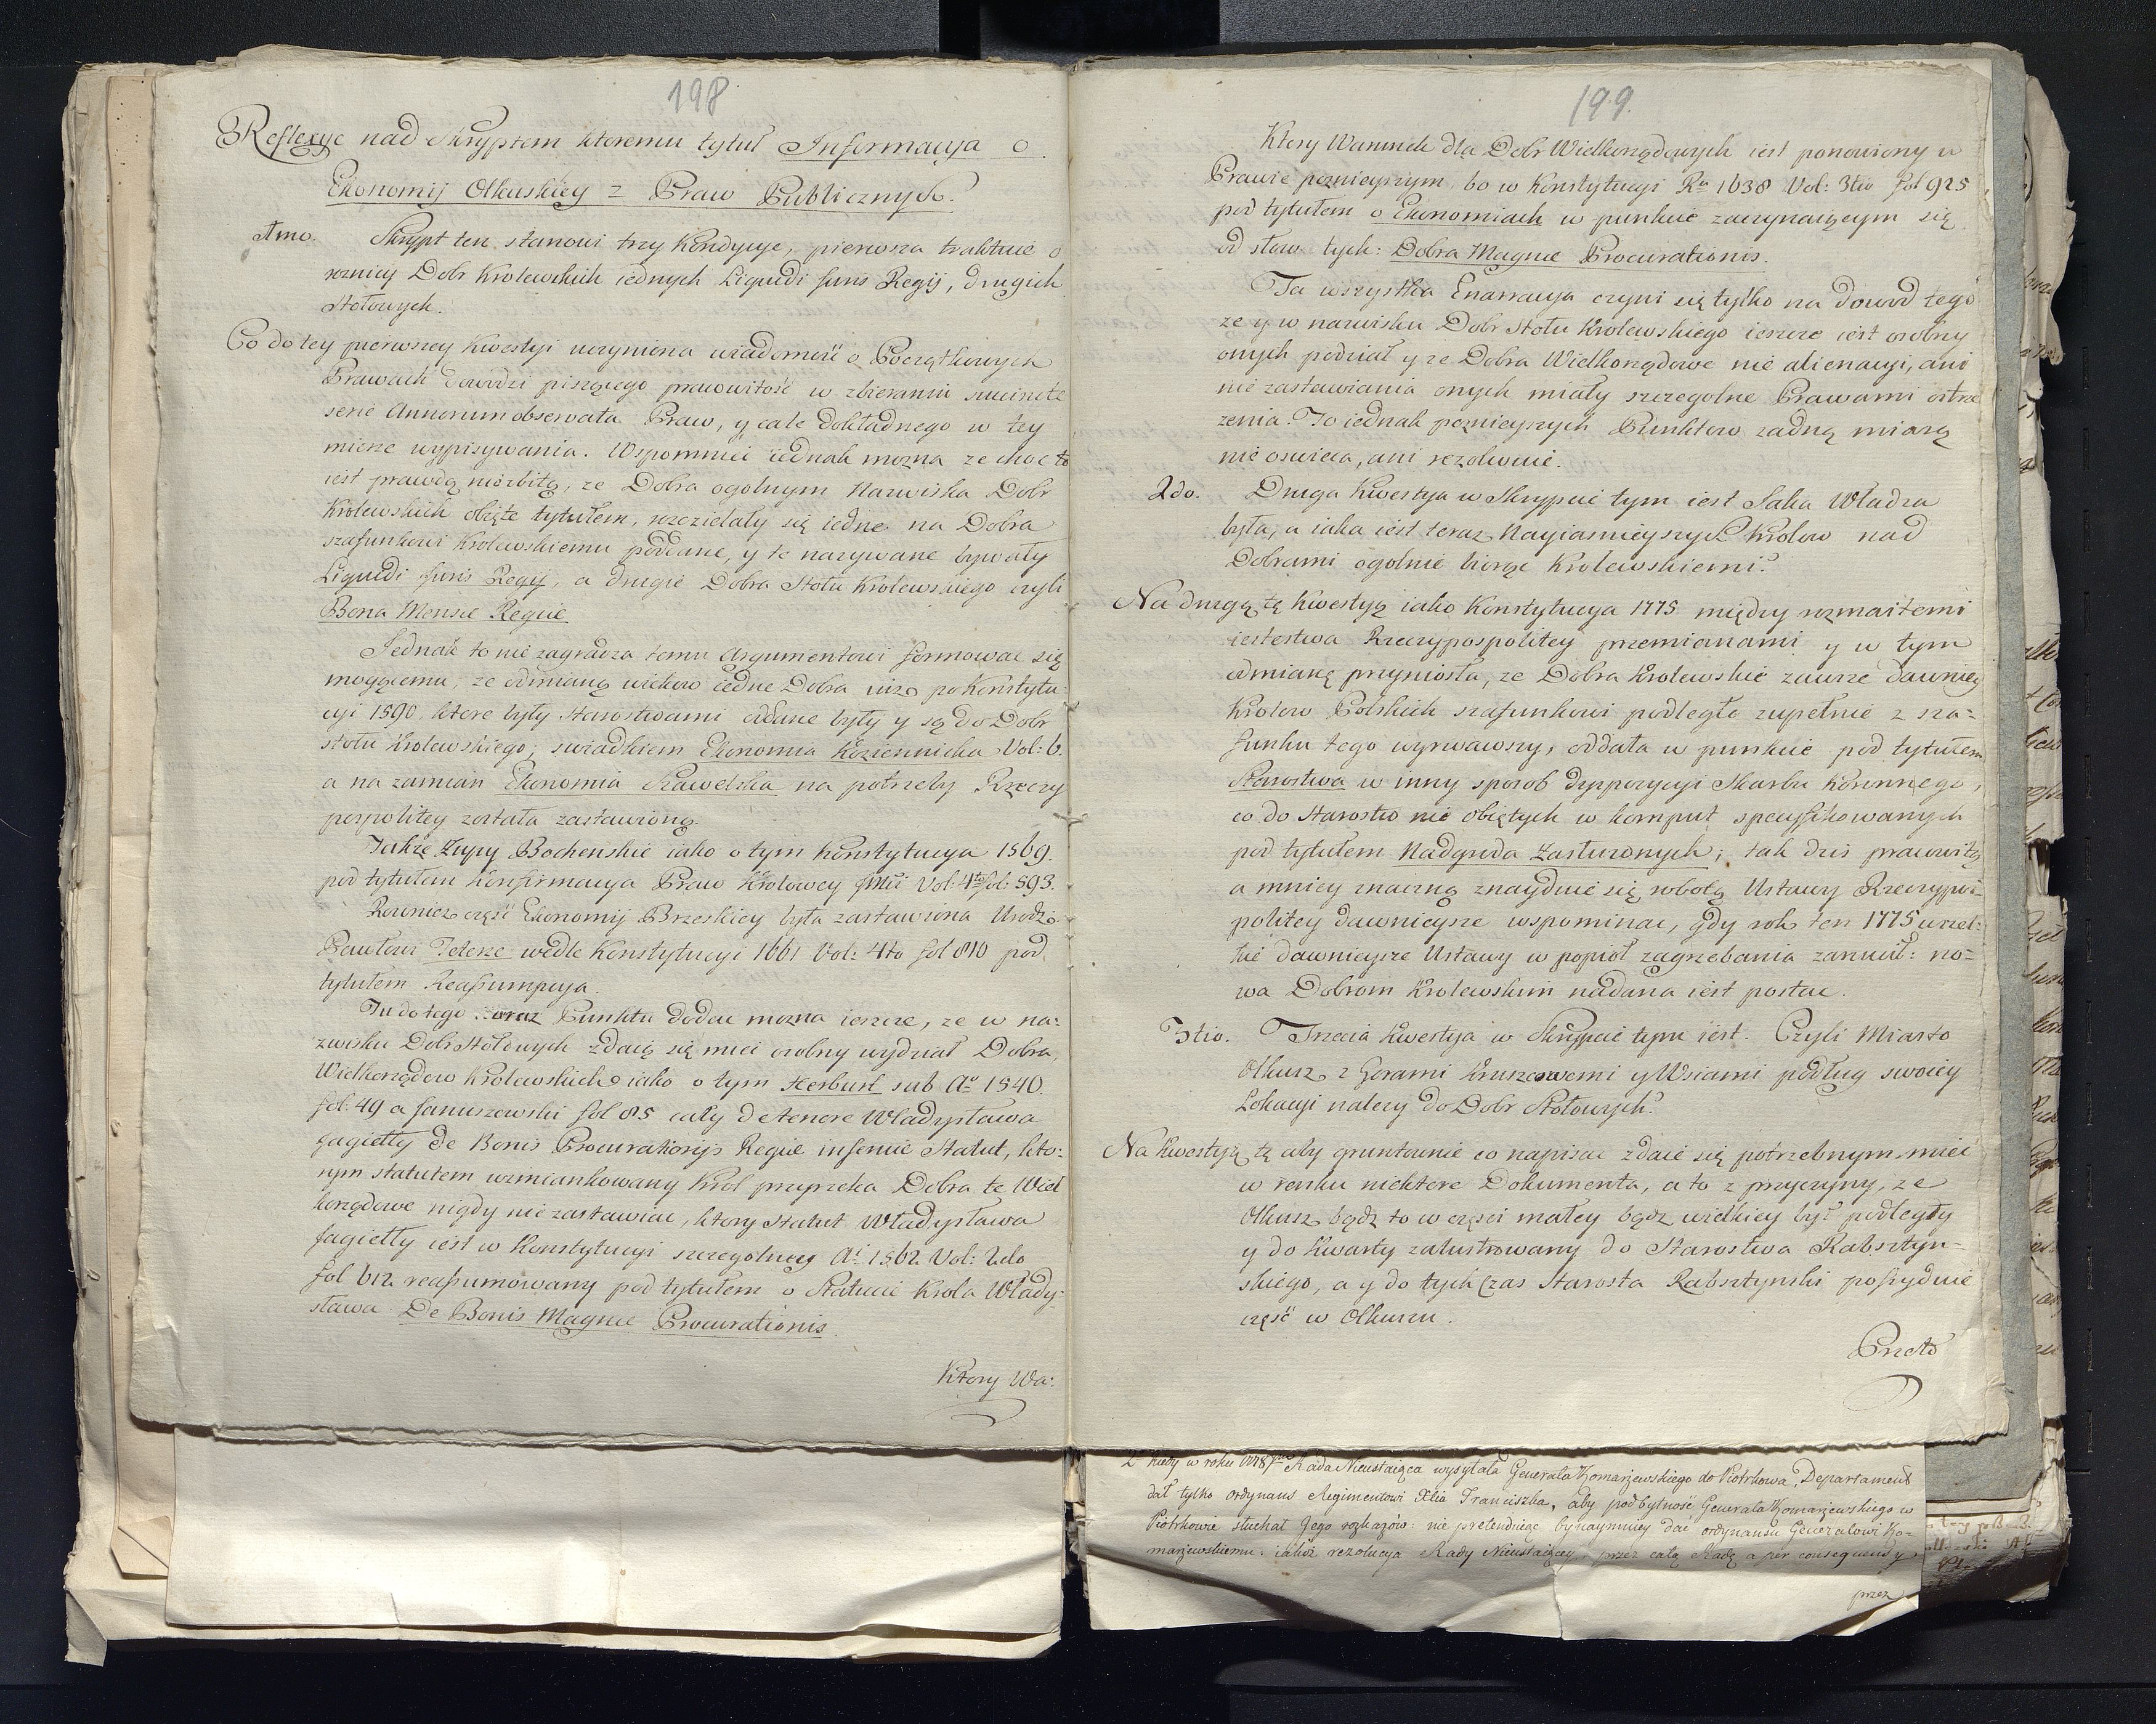 198
Reflexye nad Skryptem ktoremu tytuł Informacya o
Ekonomij Olkuskiey z Praw Publicznych.
1mo. Skrypt ten stanowi trzy Kondycye, pierwsza traktuie o
roznicy Dobr Krolewskich iednych Liquidi Juris Regij, drugich
Stołowych.
Co do tey pierwszey Kwestyi uczyniona wiadomość o Początkowych
Prawach dowodzi piszącego pracowitość w zbieraniu succincte
serie Annorum observata Praw, y cale dokładnego w tey
mierze wypisywania. Wspomnieć iednak mozna ze choc to
iest prawdą niezbitą, ze Dobra ogolnym Nazwiska Dobr
Krolewskich obięte tytułem, rozdzielały się iedne na Dobra
szafunkowi Krolewskiemu poddane, y te nazywane bywały
Liquidi Juris Regij, a drugie Dobra Stołu Krolewskiego czyli
Bona Mensæ Regiæ.
Jednak to nie zagradza temu Argumentowi formowac się
mogącemu, ze odmianą wiekow iedne Dobra iuzo po Konstytu-
cyi 1590. ktore były Starostwami oddane były y są do Dobr
stołu Krolewskiego; swiadkiem Ekonomia Kozienicka Vol: 6.
a na zamian Ekonomia Szawelska na potrzeby Rzeczy
pospolitey została zastawioną.
Także Zupy Bochenskie iako o tym Konstytucya 1569.
pod tytułem Konfirmacya Praw Krolowey Jmci Vol: 4to fol: 593.
Rowniez część Ekonomij Brzeskiey była zastawiona Urodzo.
Pawłowi Teterze wedle Konstytucyi 1661 Vol: 4to fol 810 pod
tytułem Reassumpcya.
Tu do tego oraz Punktu dodac mozna ieszcze, ze w na-
zwisku Dobr Stołowych zdaią się miec osobny wydział Dobra
Wielkorządow Krolewskich iako o tym Herburt sub Ao 1540.
fol. 49 a Januszewski fol 85 cały de tenore Władysława
Jagiełły de Bonis Procurationis Regiæ inseruie Statut, kto-
rym statutem wzmiankowany Krol przyrzeka Dobra te Wiel
korządowe nigdy nie zastawiac, ktory Statut Władysława
Jagiełły iest w Konstytucyi szczegolney Ai 1562 Vol: 2do
fol 612 reassumowany pod tytułem o Statucie Krola Włady-
sława De Bonis Magnæ Procurationis.
Ktory Wa:
199.
Ktory Warunek dla Dobr Wielkorządowych iest ponowiony w
Prawie poznieyszym, bo w Konstytucyi Ru 1638 Vol: 3tio fol 925
pod tytułem o Ekonomiach w punkcie zaczynaiącym się
od słow tych: Dobra Magnæ Procurationis.
Ta wszystka Enarracya czyni się tylko na dowod tego
ze y w nazwisku Dobr Stołu Krolewskiego ieszcze iest osobny
onych podział y ze Dobra Wielkorządowe nie alienacyi, ani
nie zastawiania onych miały szczegolne Prawami ostrze
zenia. To iednak poznieyszych Punktow zadną miarą
nie oswieca, ani rezolwuie.
2do. Druga Kwestya w Skrypcie tym iest Jaka Władza
była, a iaka iest teraz Nayiasnieyszych Krolow nad
Dobrami ogolnie biorąc Krolewskiemi?
Na drugą tę Kwestyą iako Konstytucya 1775 między rozmaitemi
iestestwa Rzeczypospolitey przemianami y w tym
odmianę przyniosła, ze Dobra Krolewskie zawsze dawniey
Krolow Polskich szafunkowi podległe zupełnie z sza-
funku tego wyrwawszy, oddała w punkcie pod tytułem
Starostwa w inny sposob dyspozycyi Skarbu Koronnego,
co do Starostw nie obiętych w komput specyfikowanych
pod tytułem Nadgroda Zasłuzonych; tak dzis pracowitą
a mniey znaczną znayduie się robotą Ustawy Rzeczypos-
politey dawnieysze wspominac, gdy rok ten 1775 wszel-
kie dawnieysze Ustawy w popioł zagrzebania zarzucił: no-
wa Dobrom Krolewskim nadana iest postac.
3tio. Trzecia Kwestya w Skrypcie tym iest. Czyli Miasto
Olkusz z Gorami Kruszcowemi y Wsiami podług swoiey
Lokacyi nalezy do Dobr Stołowych?
Na Kwestyą tę aby gruntownie co napisac zdaie się potrzebnym miec
w ręnku niektore Dokumenta, a to z przyczyny, ze
Olkusz bądz to w części małey bądz wielkiey był podległy
y do Kwarty zalustrowany do Starostwa Rabsztyn-
skiego, a y do tych czas Starosta Rabsztynski possyduie
część w Olkuszu.
Przeto
kiedy w roku 1778 Rada Nieustaiąca wysyłała Generała Komarzewskiego do Piotrkowa, Departament
dał tylko ordynans Regimentowi Xcia Franciszka, aby pod bytność Generała Komarzewskiego w
Piotrkowie słuchał Jego rozkazów: nie pretenduiąc bynaymniey dać ordynansu Generałowi Ko-
marzewskiemu: iakoż rezolucya Rady Nieustaiącey, przez całą Radę a per consequens y
przez